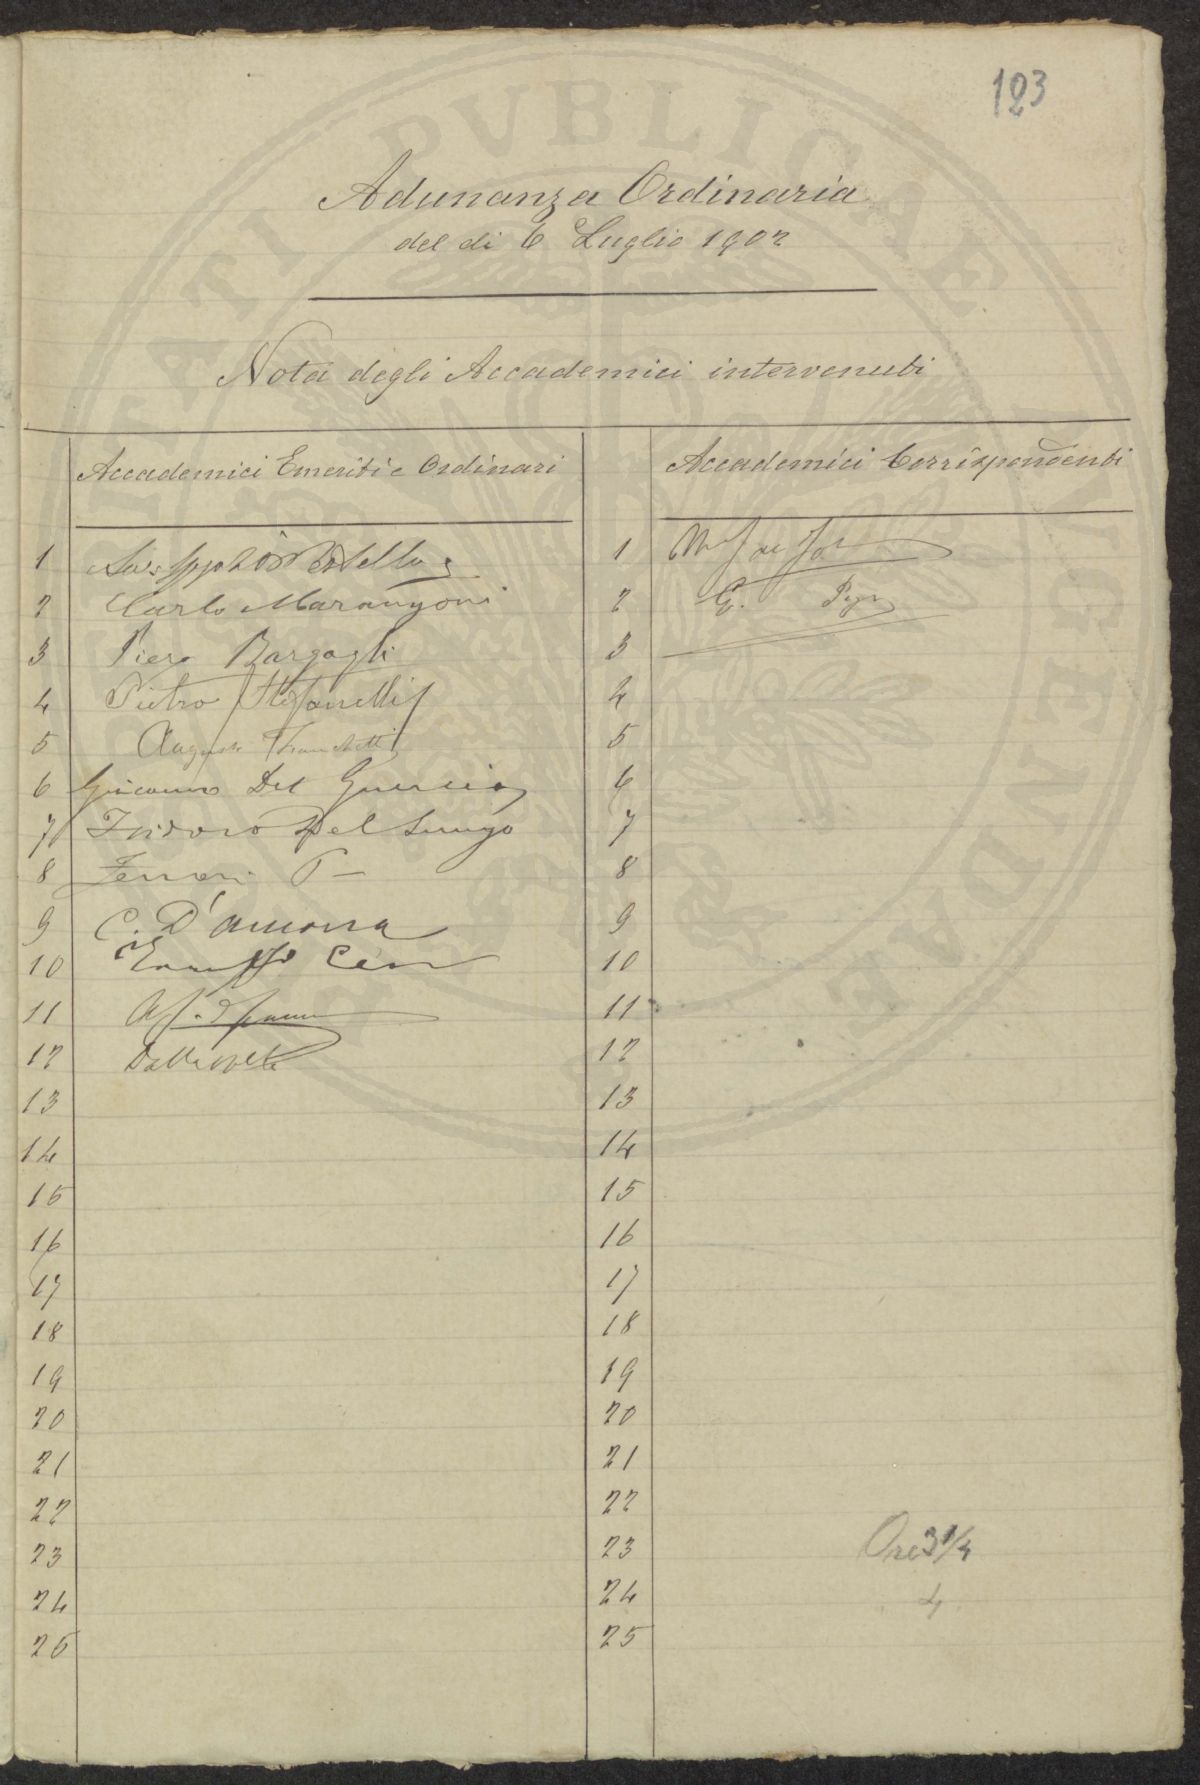 123
Adunanza Ordinaria
del di 6 Luglio 1902
Nota degli Accademici intervenuti
Accademici Emeriti e Ordinari
Accademici Corrispondenti
1
2 Carlo Marangoni
3 Piero Bargagli
4 Pietro Stefanelli
5 Augusto Franchetti
6 Giacomo Del Guercio
7 Isidoro Del Lungo
8
9 C. D'Ancona
10
11
12 Dalla Volta
13
14
15
16
17
18
19
20
21
22
23
24
25
1
2 G.
3
4
5
6
7
8
9
10
11
12
13
14
15
16
17
18
19
20
21
22
23
24
25
Ore 3 1/4
4
PVBLICAE